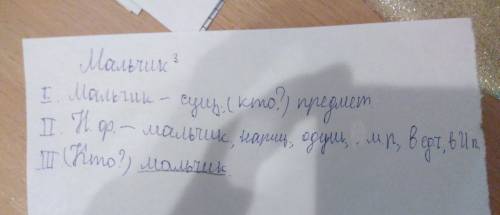 Мальчик³
I. Мальчик – сущ. (кто?) предмет
II. Н.ф. – мальчик, нариц, одуш, м п, в едч, в И п,
III (Кто?) мальчик.